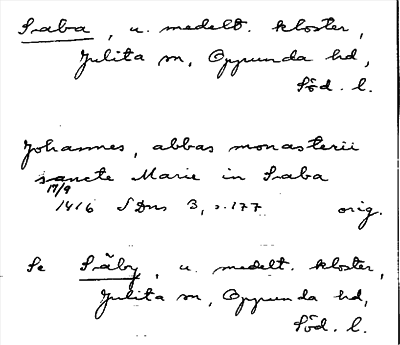 Saba, u. medelt. kloster,
Julita sn, Oppunda hd,
Söd. l.
Johannes, abbas monasterii
sancte Marie in Saba
17/9
1416 SDns 3, s. 177 orig.
Se Såby, u. medelt. kloster,
Julita sn, Oppunda hd,
Söd. l.